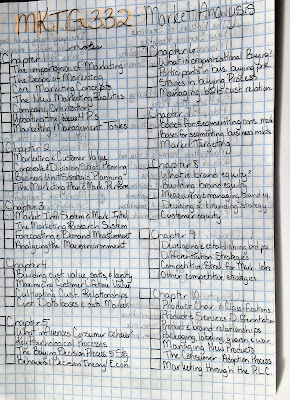 MKTG 332 Market Analysis
notes
Chapter 1
The importance of Marketing
The Scope of Marketing
Core Marketing Concepts
The New Marketing Realities
Company Orientation
Updating the Four P's
Marketing Management Tasks
Chapter 2
Marketing & Customer Value
Corporate & Division Strat. Planning
Business Unit Strategic Planning
The Marketing Plan & Mark. Perform.
Chapter 3
Market Info System & Mark. Intel.
The Marketing Research System
Forecasting & Demand Measurement
Analyzing the Macroenvironment
Chapter 4
Building Cust value, satis, & loyalty
Maximizing Customer Lifetime Value
Cultivating Cust. Relationships
Cust. Databases & data Market
Chapter 5
What influences Consumer behavior?
Key Psychological Processes
The Buying Decision Process 5 Stg
Behavioral Decision Theory & Econ.
Chapter 6
What is organizational Buying?
Participants in bus. buying prk
Stages in buying Process
Managing b2b cust relation
Chapter 7
Bases for segmenting cons. mark
Bases for segmenting business mkts
Market Targeting
Chapter 8
What is brand equity?
Building brand equity
Measuring & managing brand eq
Devising a branding strategy
Customer equity
Chapter 9
Developing & establishing brd pos.
Differentiation Strategies
Competitive Strat. for Mark. ldrs
Other competitive strategies
Chapter 10
Product Char. & Classifications
Product & Services Differentiation
Product & brand relationships
Packaging, labeling, guaran & war.
Managing New Products
The Consumer Adoption Process
Marketing through the P.L.C.